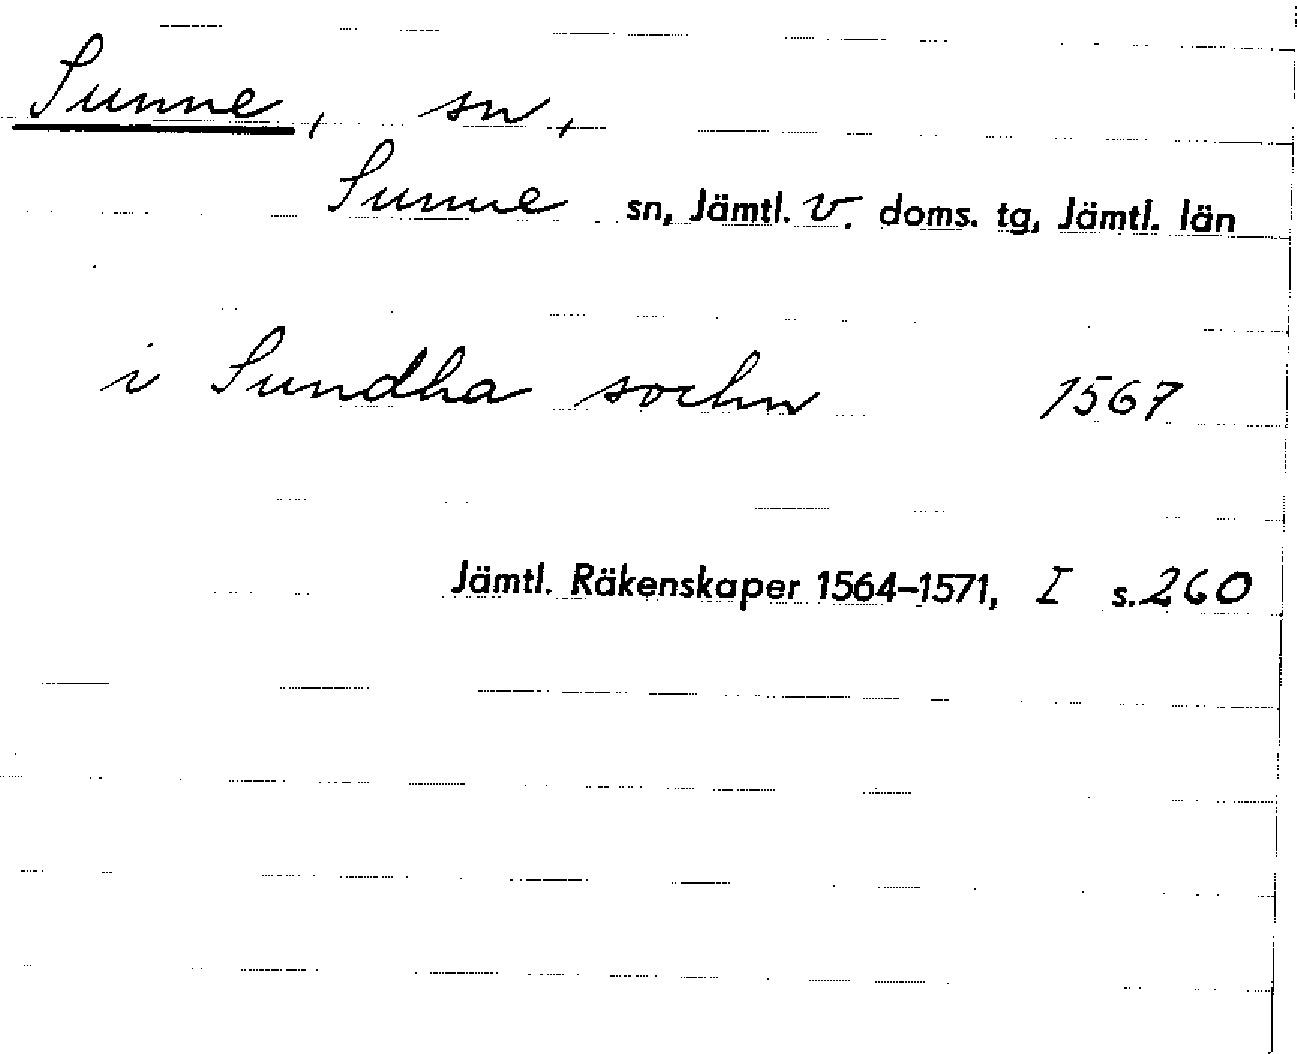 Sunne, sn,
Sunne sn, Jämtl. v. doms. tg, Jämtl. län
i Sundha sochn 1567
Jämtl. Räkenskaper 1564–1571, I s. 260